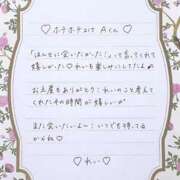 ♡ ホテホテコけ Aくん ♡
「ほんとに会いたかった!」って言ってくれて
嬉しかった♡ れいも楽しみにしてたよ
お土産もありがとう! れいのこと考えて
くれたその時間が嬉しい
また会いたいよ〜! いつでも待ってる
からね♡
♡ れい ♡